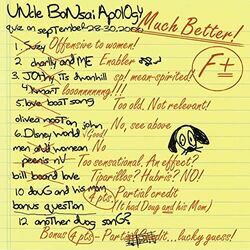 UNcle BoNsai Apology
Much Better!
quiz on september 28-30, 200
F+
1. Suzy Offensive to women!
2. charly and ME Enabler
3. JOhNy its downhill sp! mean-spirited!
looonnnnnng!!!
5. love boat song Too old. Not relevant!
olivea nooton john No, see above
6. Disney world Good!
men and woman No
peenis nV Too sensational. An effect?
bill board love Tiparillos? Hubris? NO!
10 douG and his mom Partial credit
4 pts (It had Doug and his Mom)
bonus question
12 another dog song?
Bonus 4 pts - Partial credit... lucky guess!